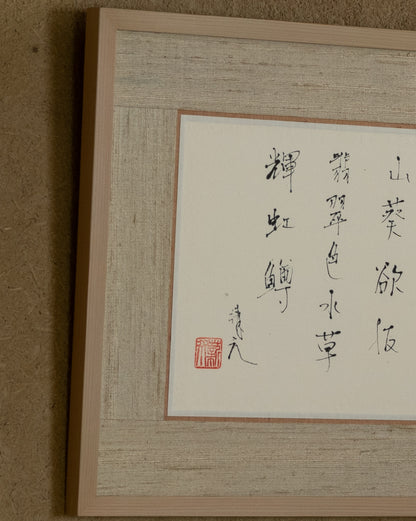 山葵欲抜
翡翠色水草
輝虹鱒